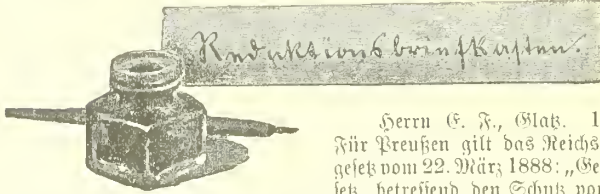 Redaktionsbriefkasten.
Herrn E. F., Glatz. 1
Für Preußen gilt das Reichs
gesetz vom 22. März 1888: „Ge
setz, betreffend den Schutz von